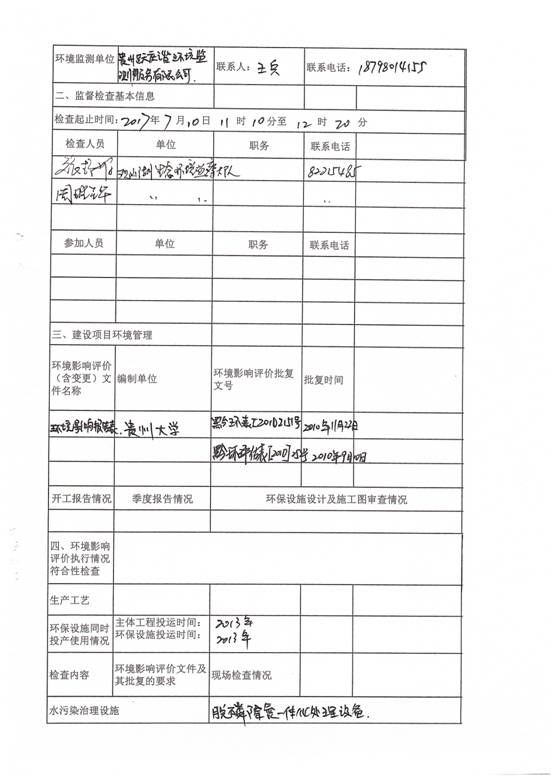 环境监测单位 贵州跃应谐环境监 联系人：王兵 联系电话：18798014155
测服务有限公司.
二、监督检查基本信息
检查起止时间：2017年7月10日11时10分至12时20分
检查人员 单位 职务 联系电话
生态环境监察大队 82215485
周 〃 〃 〃
参加人员 单位 职务 联系电话
三、建设项目环境管理
环境影响评价
（含变更）文
件名称
编制单位
环境影响评价批复
文号
批复时间
环境影响报告表. 贵州大学 黔环表[2010]151号 2010年11月22日
黔环评估表[2010] 2010年9月10日
开工报告情况 季度报告情况 环保设施设计及施工图审查情况
四、环境影响
评价执行情况
符合性检查
生产工艺
环保设施同时
投产使用情况
主体工程投运时间： 2013年
环保设施投运时间： 2013年
检查内容
环境影响评价文件及
其批复的要求
现场检查情况
水污染治理设施 脱磷除氮一体化处理设备.